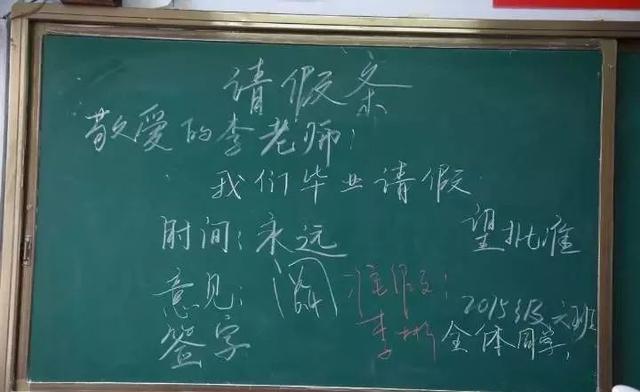 请假条
敬爱的李老师:
我们毕业请假
时间:永远
望批准
意见:
准假:
签字
李彬
2015级六班
全体同学